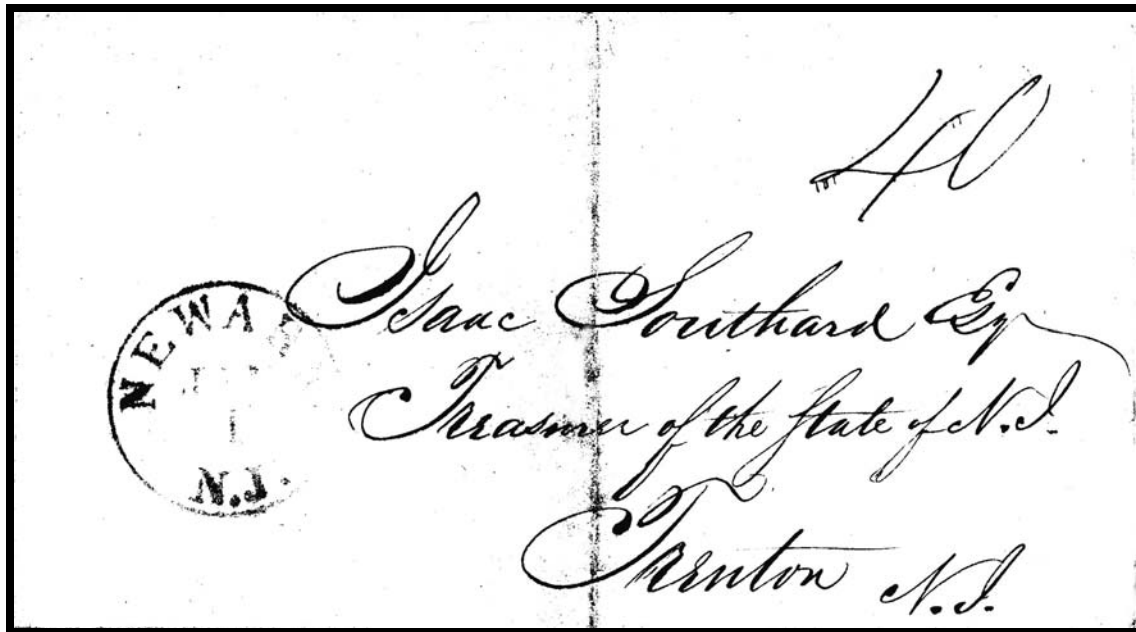 40
NEWA
1
N.J.
Isaac Southard Esq
Treasurer of the State of N.J.
Trenton N.J.